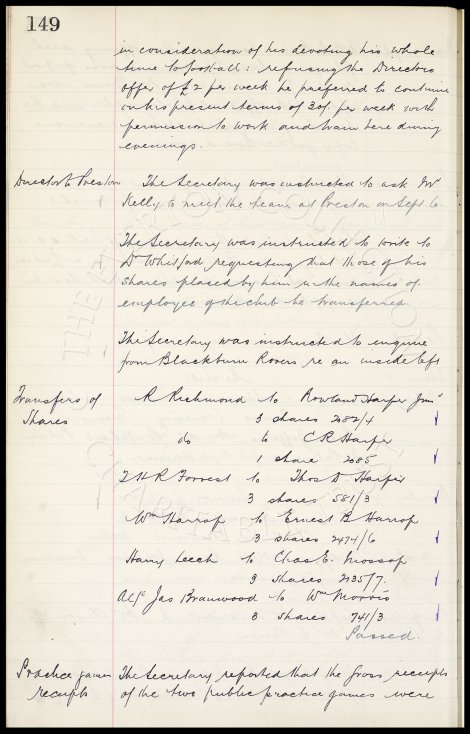 149
in consideration of his devoting his whole
time to football: refusing the Directors
offer of £2 per week he preferred to continue
on his present terms of 30/. per week with
permission to work and train here during
evenings.
Director to Preston The Secretary was instructed to ask Mr
Kelly to meet the team at Preston on Sept. 6.
The Secretary was instructed to write to
Dr Whitford requesting that those of his
shares placed by him in the names of
employes of the club be transferred
The Secretary was instructed to enquire
from Blackburn Rovers re an inside left
Transfers of R Richmond to Rowland Harper Junr
Shares 3 shares 2082/4
do to C R Harper
1 share 2085
T H R Forrest to Thos D. Harper
3 shares 581/3
Wm Harrop to Ernest B Harrop
3 shares 2474/6
Harry Leech to Chas E. Mossop
3 shares 2135/7.
Jas Branwood to Wm Morris
3 shares 741/3
Passed.
Practice games The Secretary reported that the gross receipts
receipts of the two public practice games were